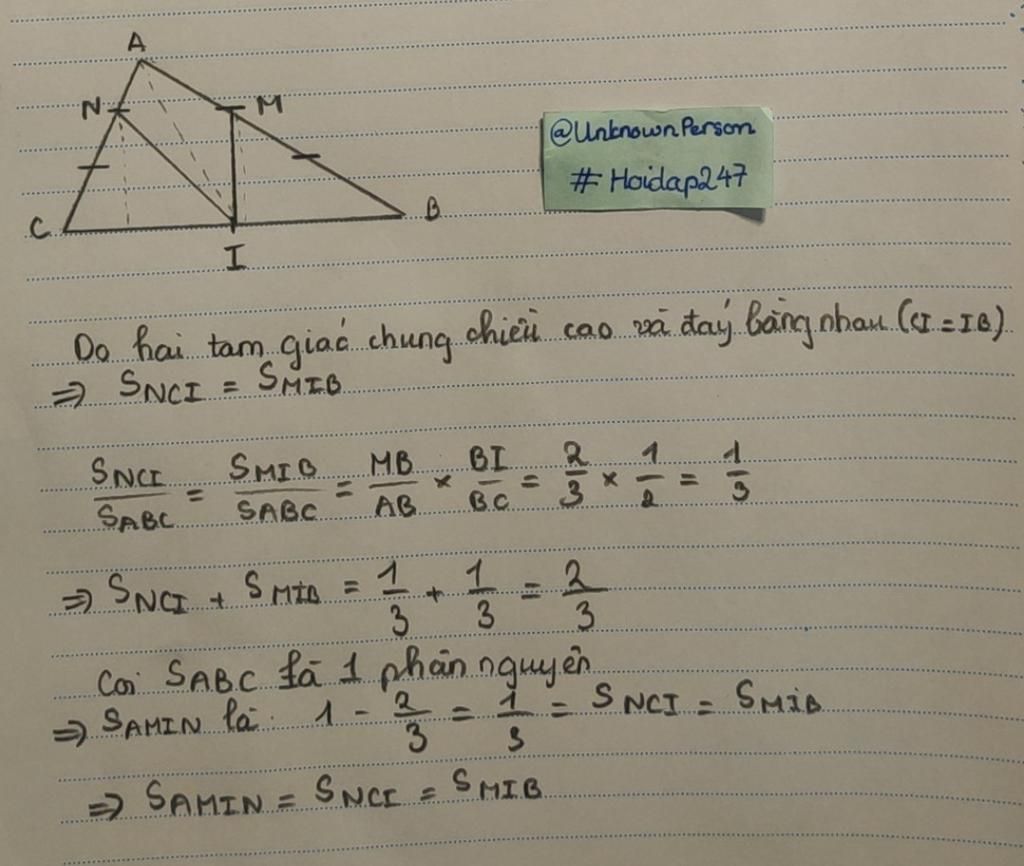 A
N
M
C
B
I
@UnknownPerson
# Hoidap247
Do hai tam giác chung chiều cao và đáy bằng nhau (CI = IB)
=> SNCI = SMIB
SNCI/SABC = SMIB/SABC = MB/AB × BI/BC = 2/3 × 1/2 = 1/3
=> SNCI + SMIB = 1/3 + 1/3 = 2/3
Coi SABC là 1 phần nguyên
=> SAMIN là: 1 - 2/3 = 1/3 = SNCI = SMIB
=> SAMIN = SNCI = SMIB